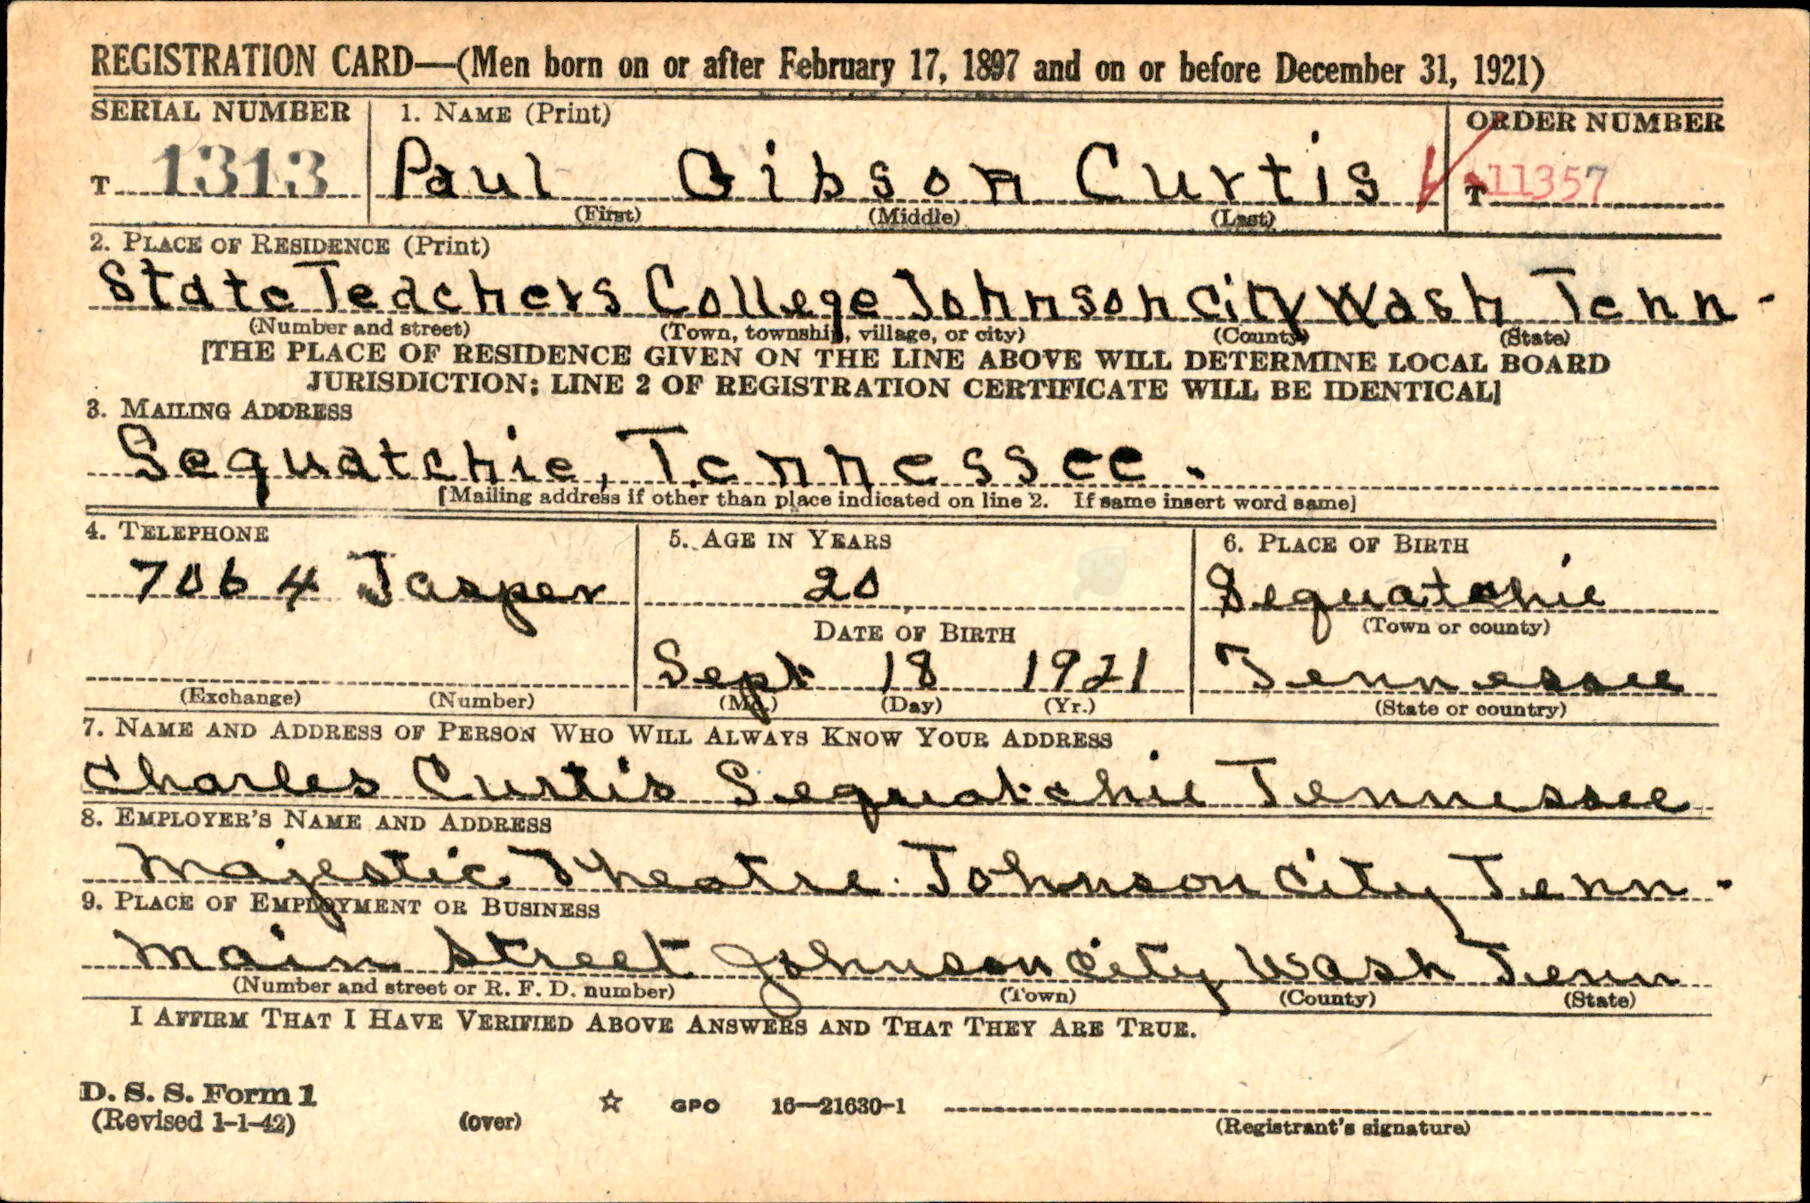 REGISTRATION CARD—(Men born on or after February 17, 1897 and on or before December 31, 1921)
SERIAL NUMBER 1. NAME (Print) ORDER NUMBER
T 1313 Paul Gibson Curtis T 11357
(First) (Middle) (Last)
2. PLACE OF RESIDENCE (Print)
State Teachers College Johnson City Wash Tenn -
(Number and street) (Town, township, village, or city) (County) (State)
[THE PLACE OF RESIDENCE GIVEN ON THE LINE ABOVE WILL DETERMINE LOCAL BOARD
JURISDICTION; LINE 2 OF REGISTRATION CERTIFICATE WILL BE IDENTICAL]
3. MAILING ADDRESS
Sequatchie, Tennessee.
[Mailing address if other than place indicated on line 2. If same insert word same]
4. TELEPHONE 5. AGE IN YEARS 6. PLACE OF BIRTH
7064 Jasper 20 Sequatchie
DATE OF BIRTH (Town or county)
Sept 18 1921 Tennessee
(Exchange) (Number) (Mo.) (Day) (Yr.) (State or country)
7. NAME AND ADDRESS OF PERSON WHO WILL ALWAYS KNOW YOUR ADDRESS
Charles Curtis Sequatchie Tennessee
8. EMPLOYER'S NAME AND ADDRESS
Majestic Theatre. Johnson City Tenn.
9. PLACE OF EMPLOYMENT OR BUSINESS
Main Street Johnson City Wash Tenn
(Number and street or R. F. D. number) (Town) (County) (State)
I AFFIRM THAT I HAVE VERIFIED ABOVE ANSWERS AND THAT THEY ARE TRUE.
D. S. S. Form 1
(Revised 1-1-42) (over) ☆ GPO 16—21630-1
(Registrant's signature)